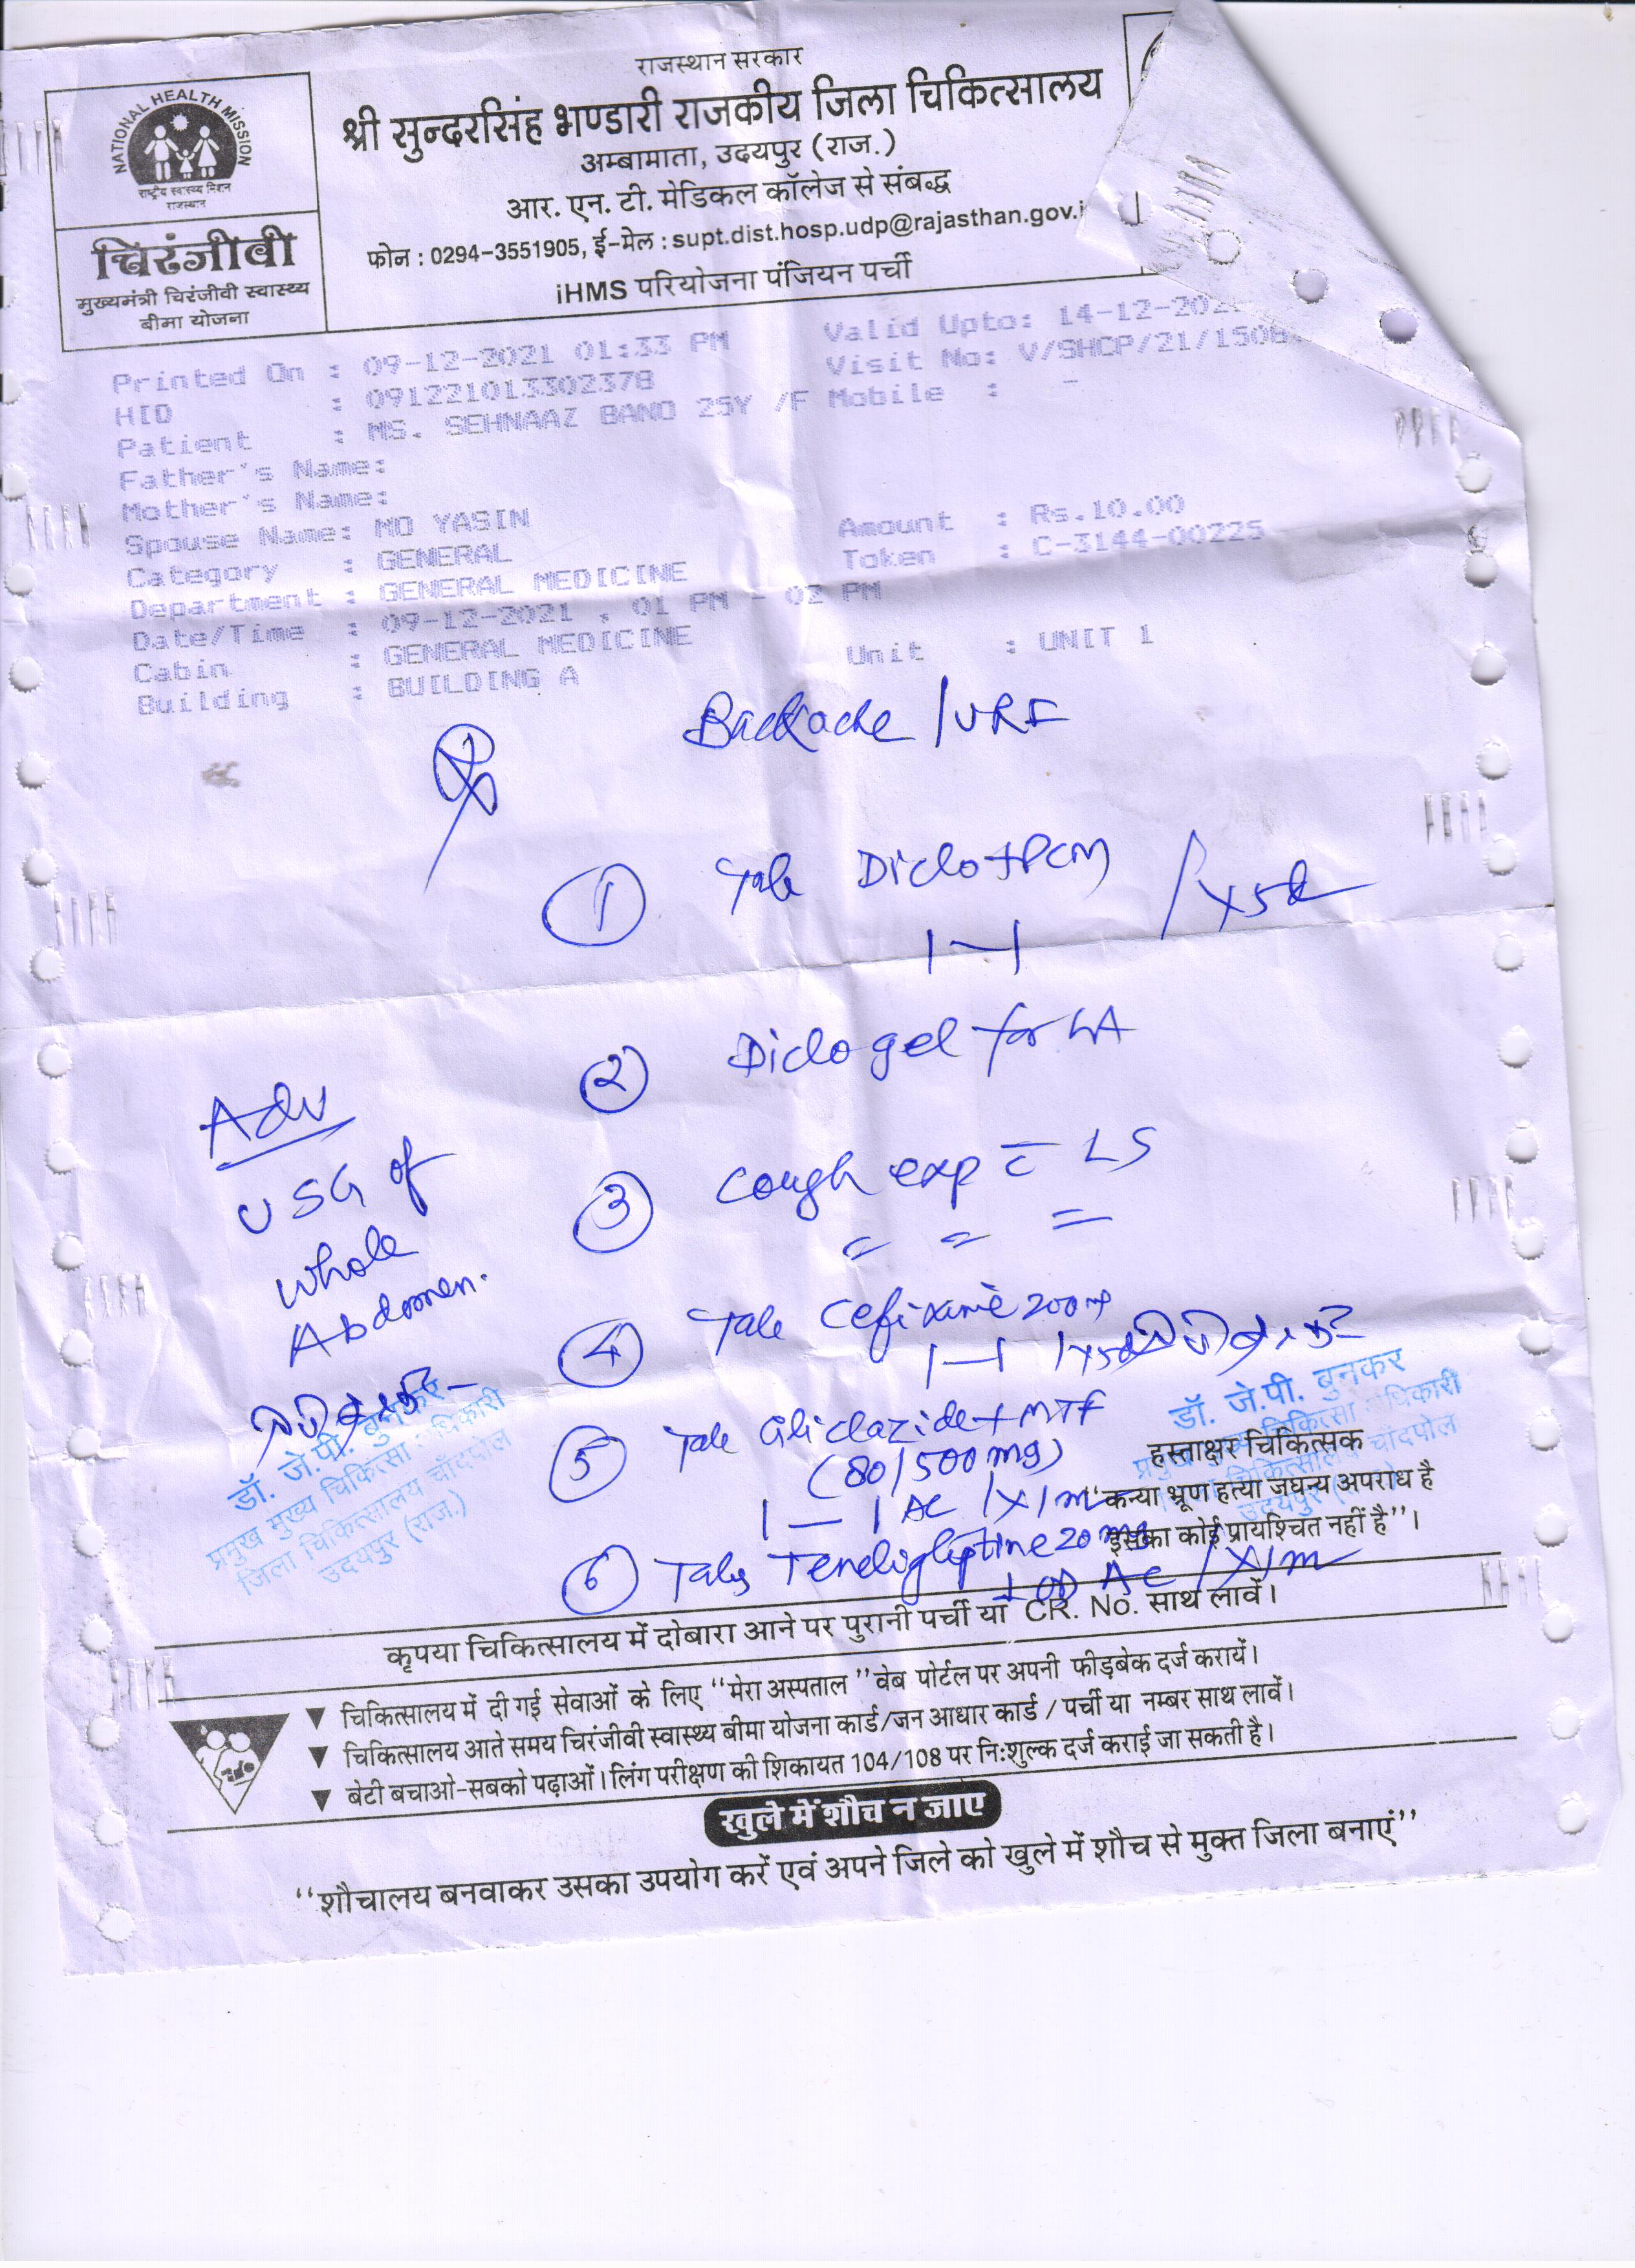 राजस्थान सरकार
श्री सुन्दरसिंह भण्डारी राजकीय जिला चिकित्सालय
अम्बामाता, उदयपुर (राज.)
आर. एन. टी. मेडिकल कॉलेज से संबद्ध
फोन : 0294-3551905, ई-मेल : supt.dist.hosp.udp@rajasthan.gov.i
iHMS परियोजना पंजियन पर्ची
NATIONAL HEALTH MISSION
राष्ट्रीय स्वास्थ्य मिशन
राजस्थान
चिरंजीवी
मुख्यमंत्री चिरंजीवी स्वास्थ्य
बीमा योजना
Printed On : 09-12-2021 01:33 PM Valid Upto: 14-12-202
HID : 091221013302378 Visit No: V/SHCP/21/1506
Patient : MS. SEHNAAZ BANO 25Y /F Mobile : -
Father's Name:
Mother's Name:
Spouse Name: MO YASIN
Category : GENERAL Amount : Rs.10.00
Department : GENERAL MEDICINE Token : C-3144-00225
Date/Time : 09-12-2021 , 01 PM - 02 PM
Cabin : GENERAL MEDICINE
Building : BUILDING A Unit : UNIT 1
Backache / URI
① Tab Diclo+PCM / x5d
1—1
② Diclo gel for LA
③ Cough exp c̄ LS
= = =
④ Tab Cefixime 200mg
1—1 / x5d
⑤ Tab Gliclazide+MTF
(80/500mg)
1 — 1 AC / x1m
⑥ Tab Teneligliptine 20mg
1 OD AC / x1m
Adv
USG of
Whole
Abdomen.
डॉ. जे.पी. बुनकर
प्रमुख मुख्य चिकित्सा अधिकारी
जिला चिकित्सालय चाँदपोल
उदयपुर (राज.)
डॉ. जे.पी. बुनकर
हस्ताक्षर चिकित्सक
"कन्या भ्रूण हत्या जघन्य अपराध है
इसका कोई प्रायश्चित नहीं है"।
कृपया चिकित्सालय में दोबारा आने पर पुरानी पर्ची या CR. No. साथ लावें।
▼ चिकित्सालय में दी गई सेवाओं के लिए "मेरा अस्पताल" वेब पोर्टल पर अपनी फीड़बेक दर्ज करायें।
▼ चिकित्सालय आते समय चिरंजीवी स्वास्थ्य बीमा योजना कार्ड/जन आधार कार्ड / पर्ची या नम्बर साथ लावें।
▼ बेटी बचाओ-सबको पढ़ाओं। लिंग परीक्षण की शिकायत 104/108 पर नि:शुल्क दर्ज कराई जा सकती है।
खुले में शौच न जाए
"शौचालय बनवाकर उसका उपयोग करें एवं अपने जिले को खुले में शौच से मुक्त जिला बनाएं"